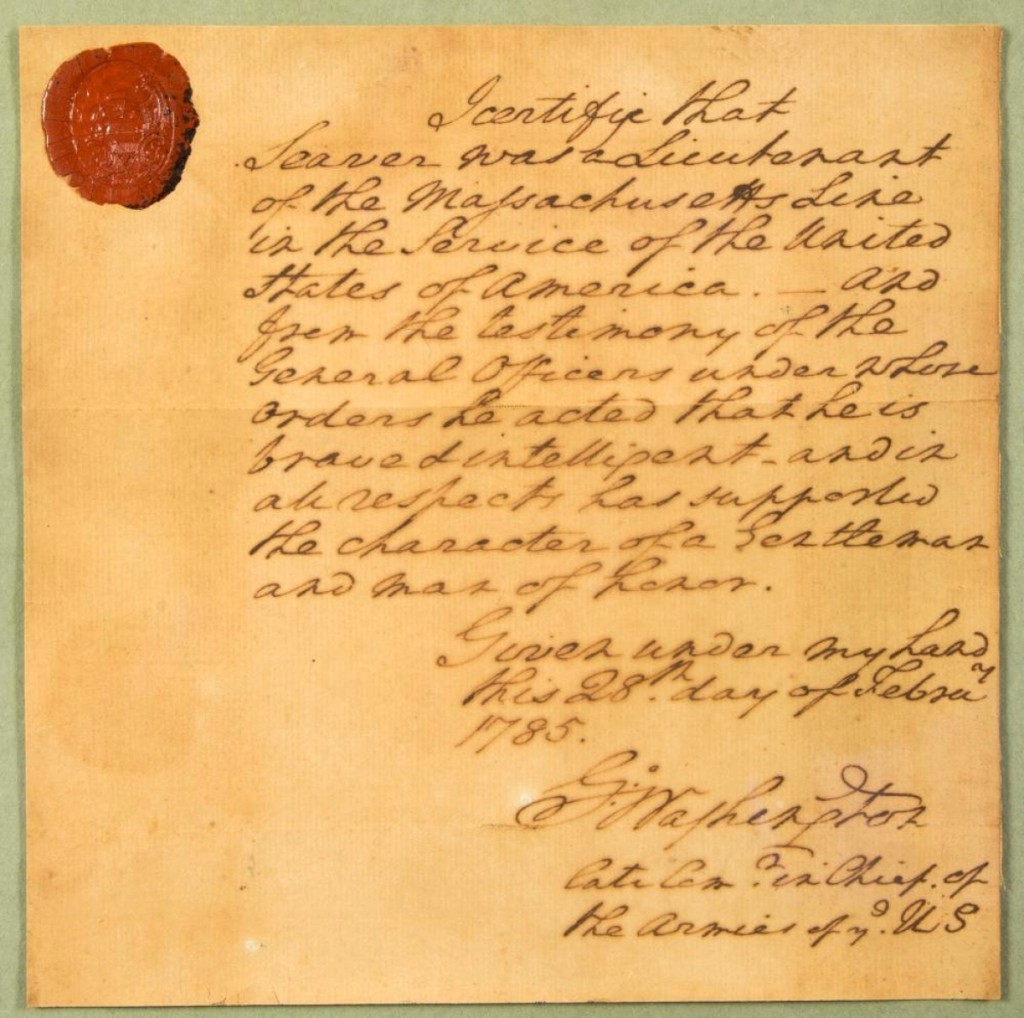 I certifie that
Seaver was a Lieutenant
of the Massachusetts Line
in the Service of the United
States of America. — And
from the testimony of the
General Officers under whose
orders he acted that he is
brave & intelligent - and in
all respects has supported
the character of a Gentleman
and man of honor.
Given under my hand
this 28th. day of Febru'y
1785.
G:Washington
late Com.r in Chief. of
the Armies of ye. U S